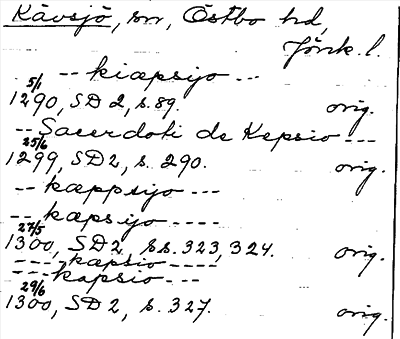 Kävsjö, sn, Östbo hd,
Jönk. l.
-- kiæpsijo --
5/1
1290, SD 2, s. 89. orig.
-- Sacerdoti de Kepsio ---
25/6
1299, SD 2, s. 290. orig.
-- kæppsijo ---
-- kæpsijo ----
27/5
1300, SD 2 ss. 323, 324. orig.
---- kapsio ----
--- kapsio ---
29/6
1300, SD 2, s. 327. orig.